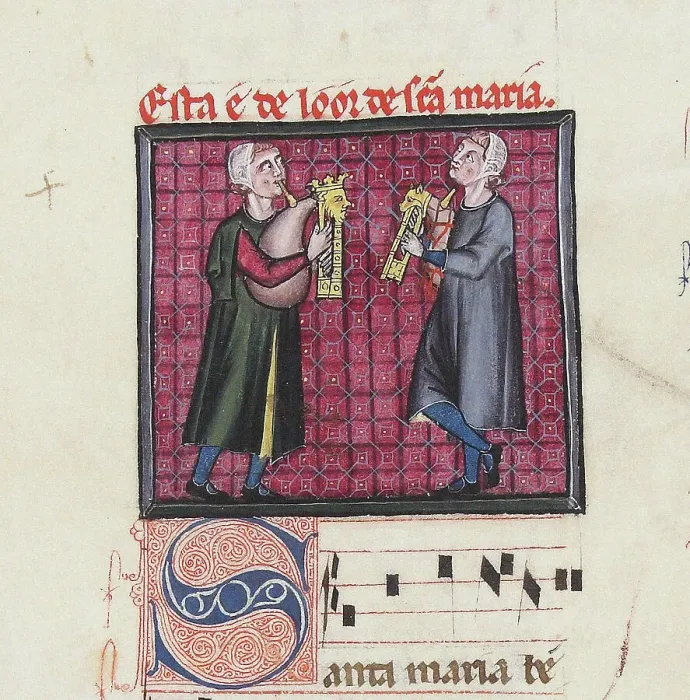 Esta é de lóór de scã maria.
Santa maria bé